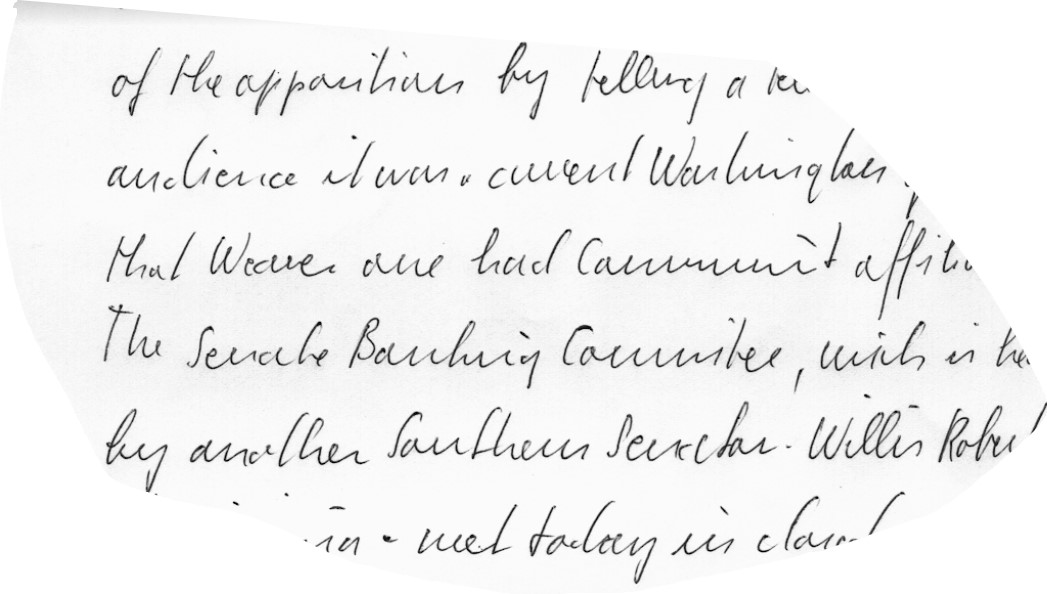 of the oppositions by telling a
audience it was. current Washington
that Weaver one had Communist
The Senate Banking Committee, wich is
by another Southern Senator. Willis
- met today in